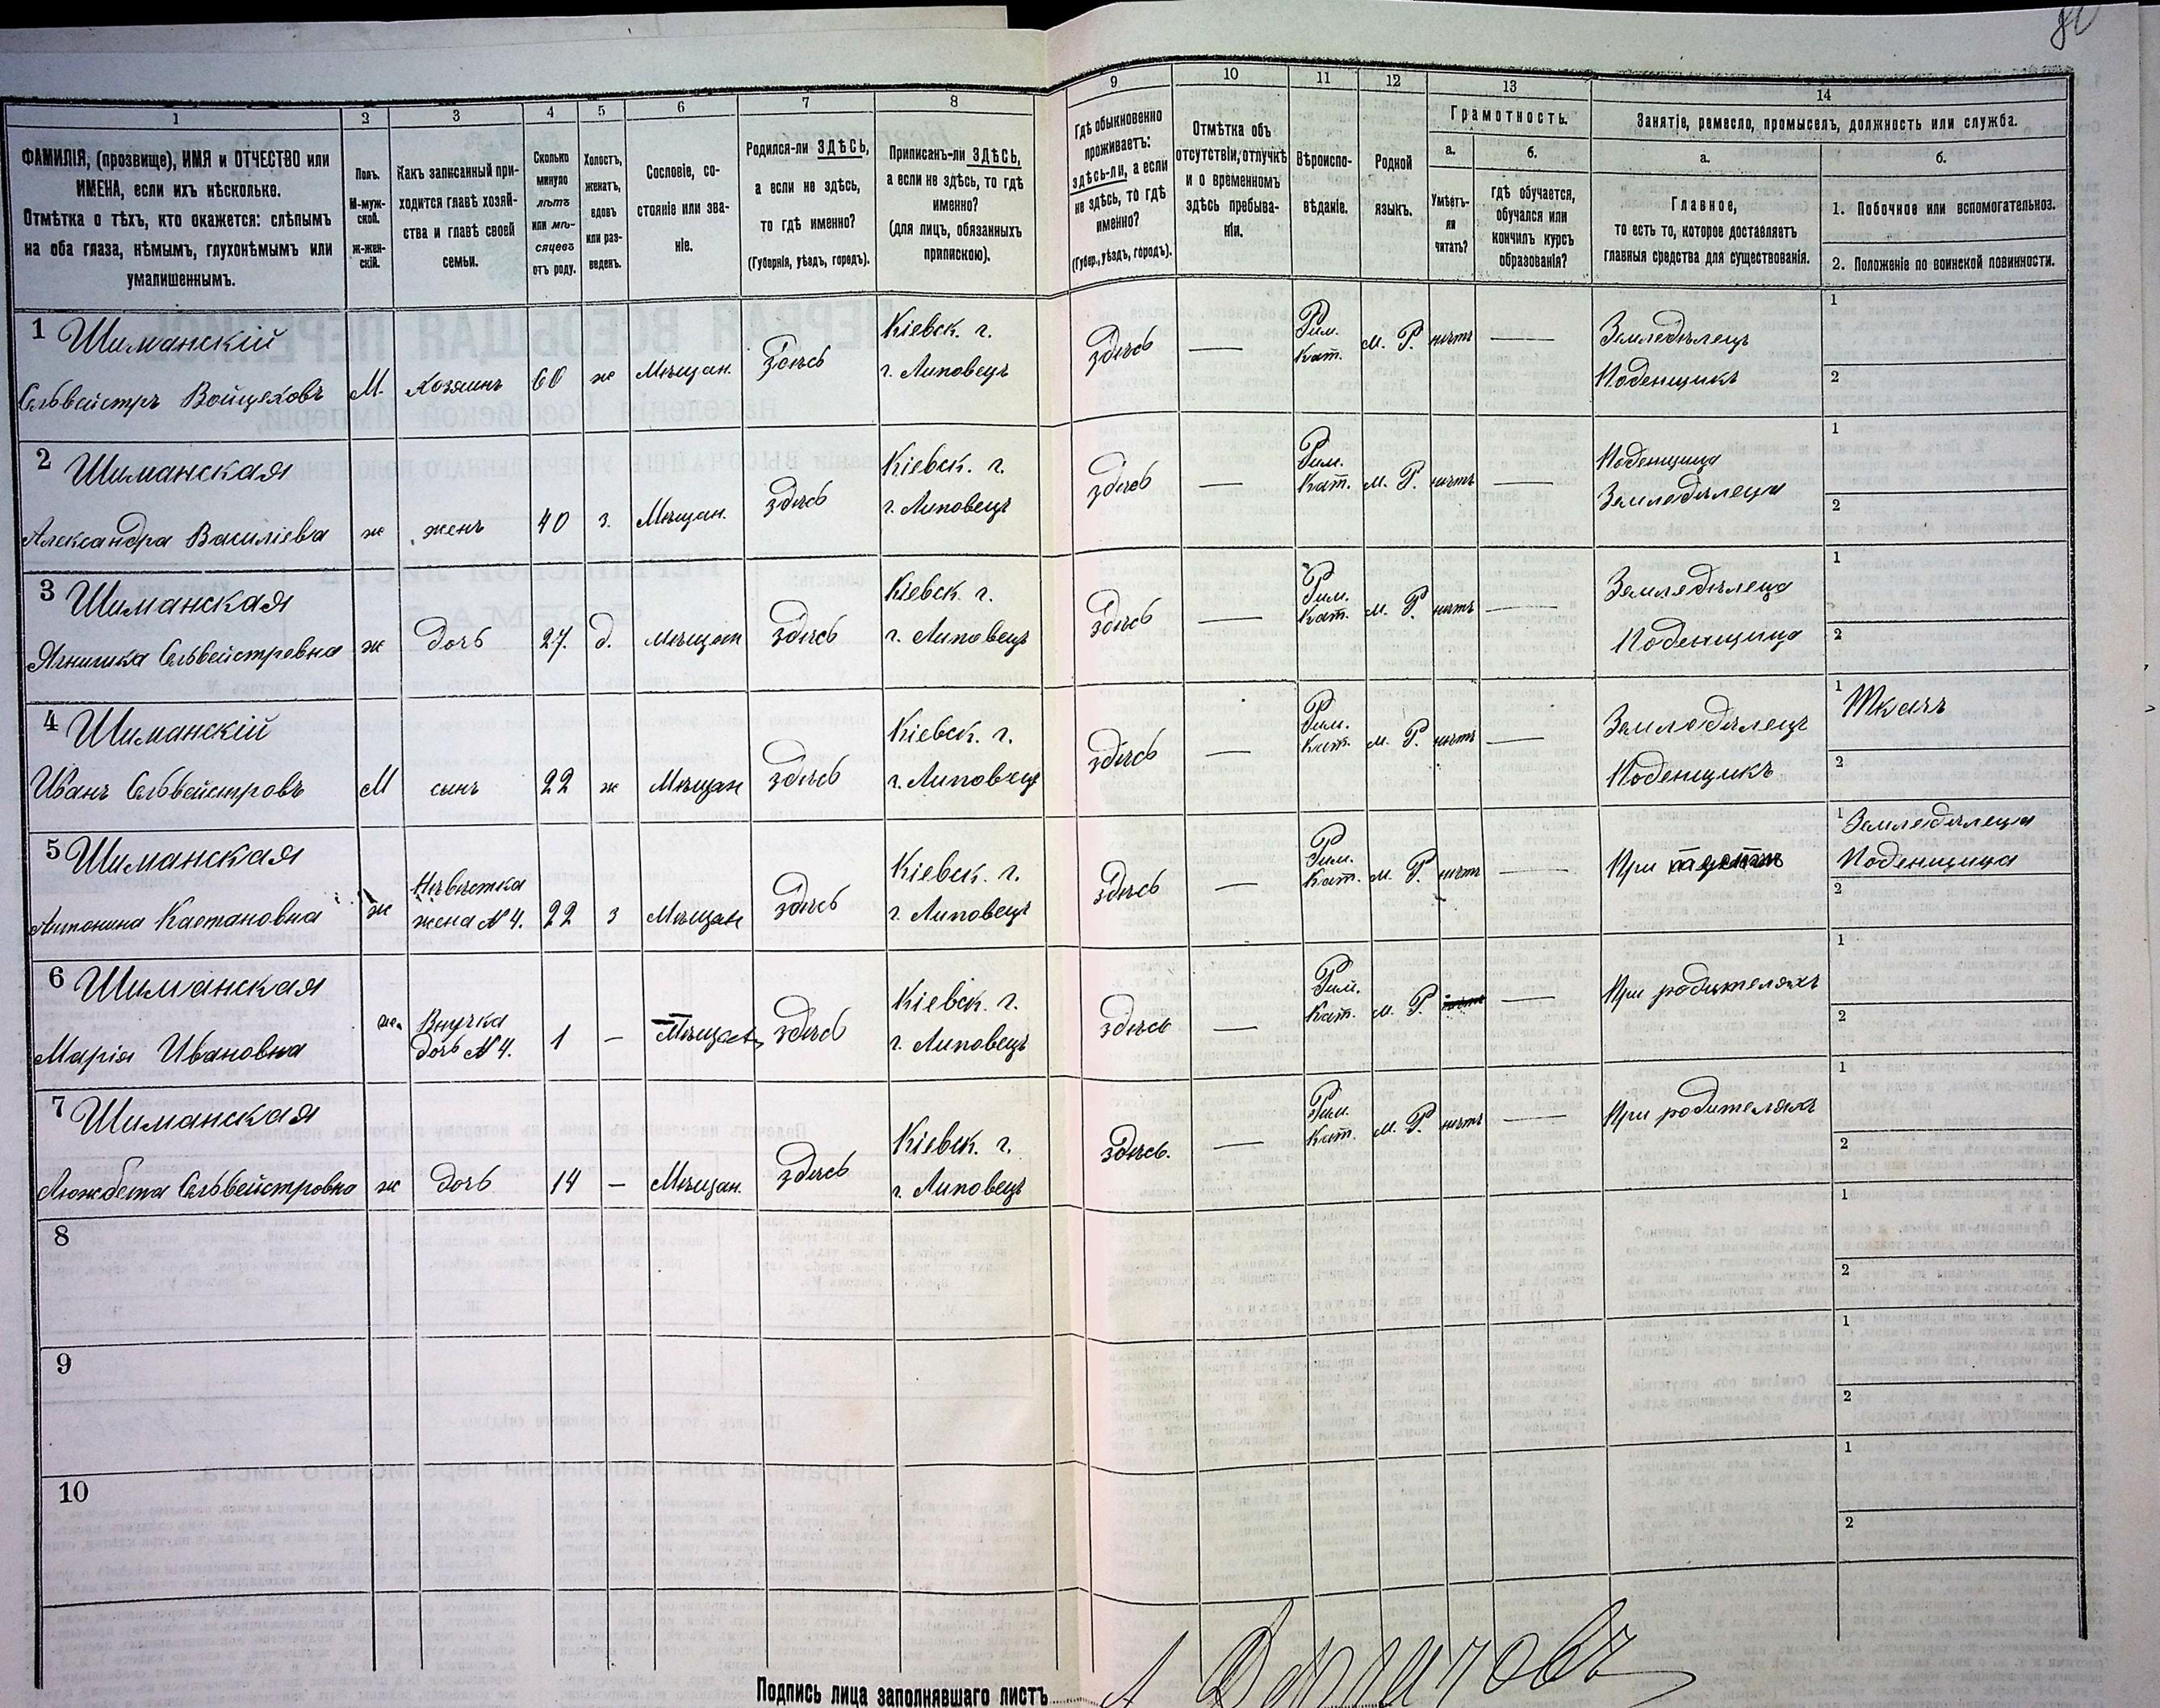 80
1 2 3 4 5 6 7 8 9 10 11 12 13 14
ФАМИЛІЯ, (прозвище), ИМЯ и ОТЧЕСТВО или
ИМЕНА, если ихъ нѣсколько.
Отмѣтка о тѣхъ, кто окажется: слѣпымъ
на оба глаза, нѣмымъ, глухонѣмымъ или
умалишеннымъ.
Полъ.
М-муж-
ской.
ж-жен-
скій.
Какъ записанный при-
ходится главѣ хозяй-
ства и главѣ своей
семьи.
Сколько
минуло
лѣтъ
или мѣ-
сяцевъ
отъ роду.
Холостъ,
женатъ,
вдовъ
или раз-
веденъ.
Сословіе, со-
стояніе или зва-
ніе.
Родился-ли ЗДѢСЬ,
а если не здѣсь,
то гдѣ именно?
(Губернія, уѣздъ, городъ).
Приписанъ-ли ЗДѢСЬ,
а если не здѣсь, то гдѣ
именно?
(для лицъ, обязанныхъ
припискою).
Гдѣ обыкновенно
проживаетъ:
здѣсь-ли, а если
не здѣсь, то гдѣ
именно?
(Губер., уѣздъ, городъ).
Отмѣтка объ
отсутствіи, отлучкѣ
и о временномъ
здѣсь пребыва-
ніи.
Вѣроиспо-
вѣданіе.
Родной
языкъ.
Грамотность.
а.
Умѣетъ-
ли
читать?
б.
гдѣ обучается,
обучался или
кончилъ курсъ
образованія?
Занятіе, ремесло, промыселъ, должность или служба.
а.
Главное,
то есть то, которое доставляетъ
главныя средства для существованія.
б.
1. Побочное или вспомогательноз.
2. Положеніе по воинской повинности.
1 Шиманскій
Сельвейстръ Войцеховъ М. Хозяинъ 60 ж Мѣщан. здѣсь
Кіевск. г.
г. Липовецъ
здѣсь —
Рим.
Кат.
м. Р. нѣтъ —
Земледѣлецъ
Поденщикъ
1
2
2 Шиманская
Александра Василіева ж женъ 40 з. Мѣщан. здѣсь
Кіевск. г.
г. Липовецъ
здѣсь —
Рим.
Кат.
м. Р. нѣтъ —
Поденщица
Земледѣлеца
1
2
3 Шиманская
Ягнишка Сельвейстревна ж дочь 27. д. мѣщан здѣсь
Кіевск. г.
г. Липовецъ
здѣсь —
Рим.
Кат.
м. Р. нѣтъ —
Земледѣлеца
Поденщица
1
2
4 Шиманскій
Иванъ Сельвейстровъ М сынъ 22 ж Мѣщан здѣсь
Кіевск. г.
г. Липовецъ
здѣсь —
Рим.
Кат.
м. Р. нѣтъ —
Земледѣлецъ
Поденщикъ
1 Ткачъ
2
5 Шиманская
Антонина Каетановна ж
Невѣстка
жена № 4.
22 з Мѣщан здѣсь
Кіевск. г.
г. Липовецъ
здѣсь —
Рим.
Кат.
м. Р. нѣтъ —
При
1 Земледѣлеца
Поденщица
2
6 Шиманская
Марія Ивановна ж.
Внучка
дочь № 4.
1 — Мѣщан здѣсь
Кіевск. г.
г. Липовецъ
здѣсь —
Рим.
Кат.
м. Р. —
При родителяхъ
1
2
7 Шиманская
Люжбета Сельвейстровна ж дочь 14 — Мѣщан. здѣсь
Кіевск. г.
г. Липовецъ
здѣсь. —
Рим.
Кат.
м. Р. нѣтъ —
При родителяхъ
1
2
8
1
2
9
1
2
10
1
2
Подпись лица заполнявшаго листъ